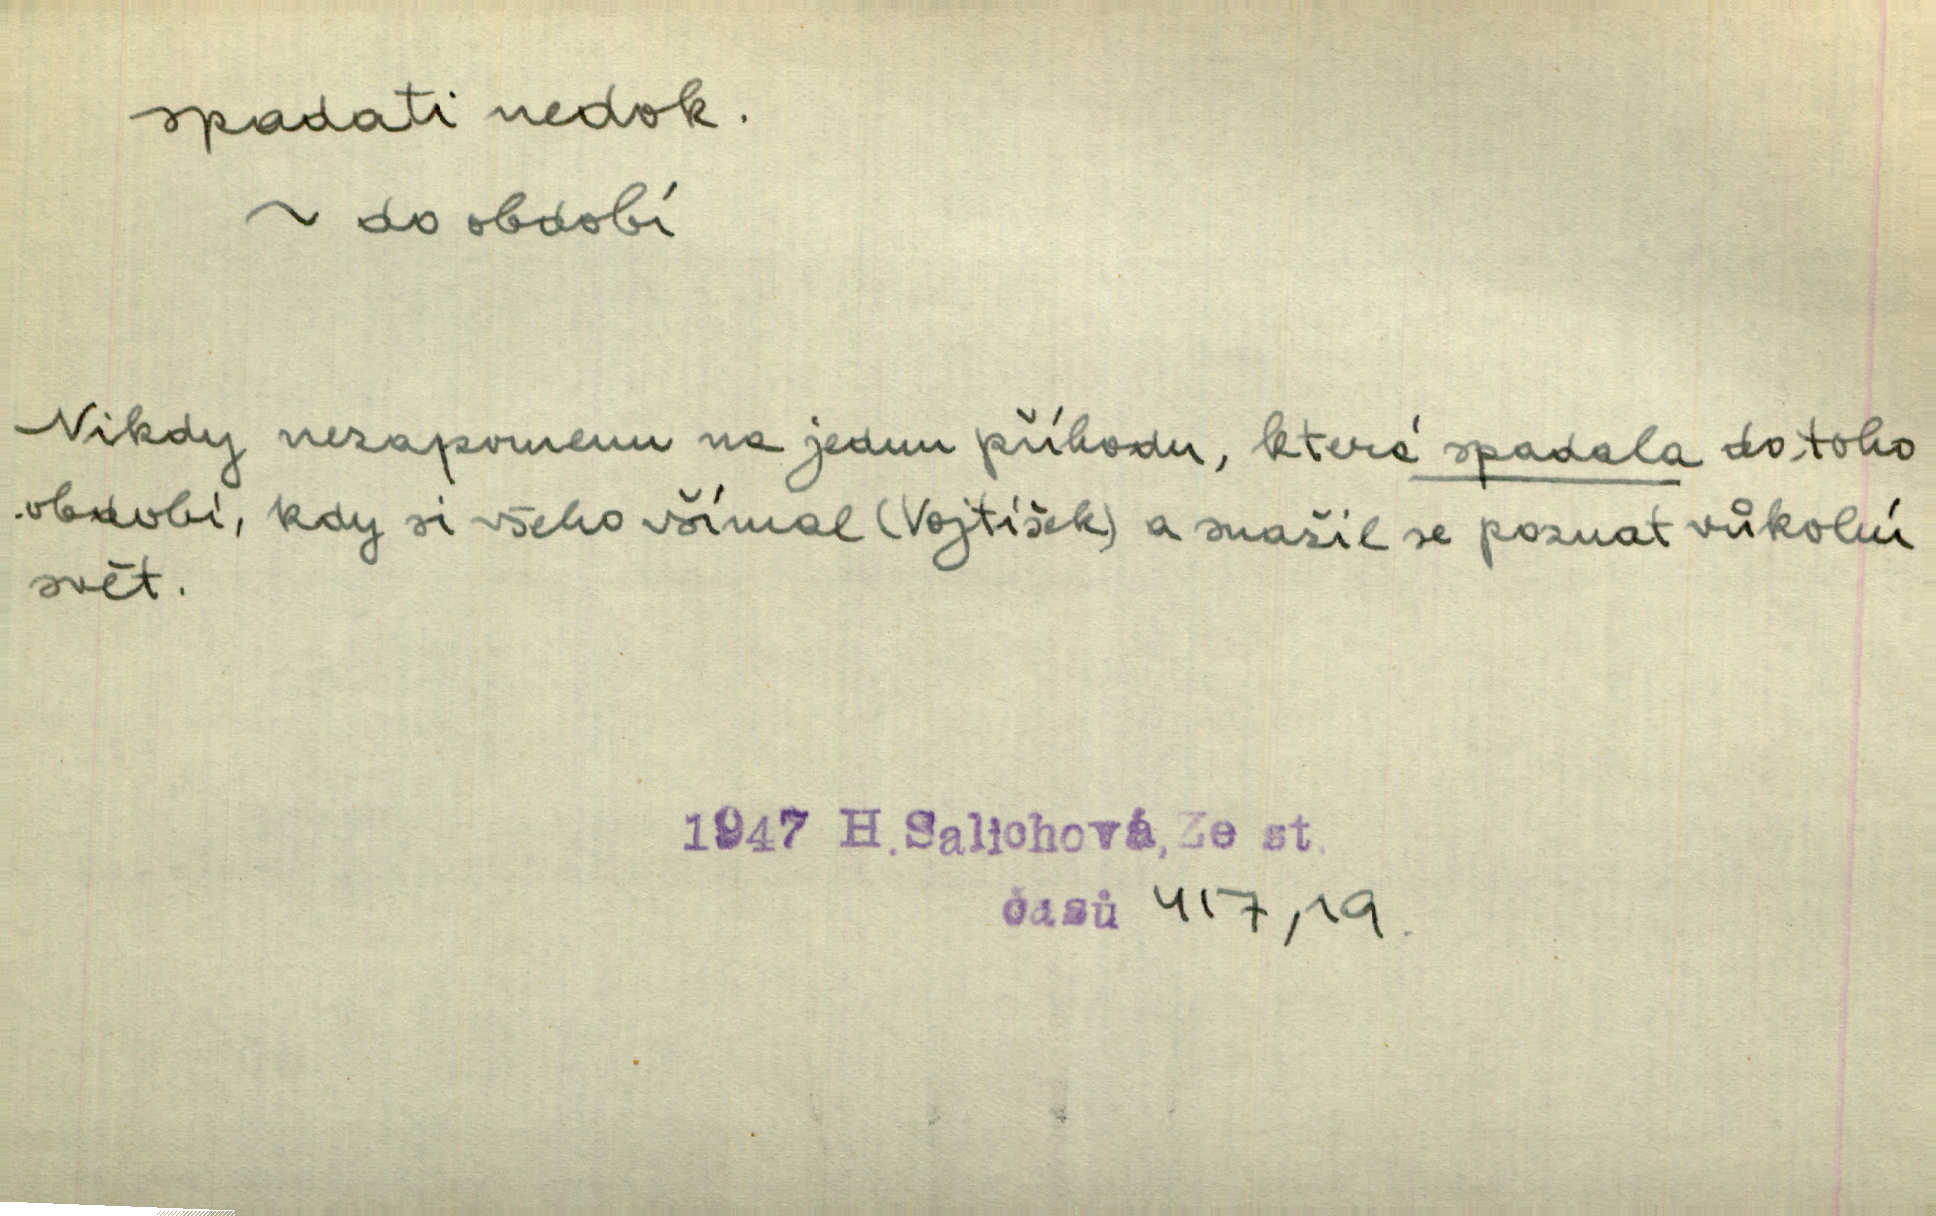 spadati nedok.
~ do období
Nikdy nezapomenu na jednu příhodu, která spadala do toho
období, kdy si všeho všímal (Vojtíšek) a snažil se poznat vůkolní
svět.
1947 H.Salichová, Ze st.
časů 417,19.